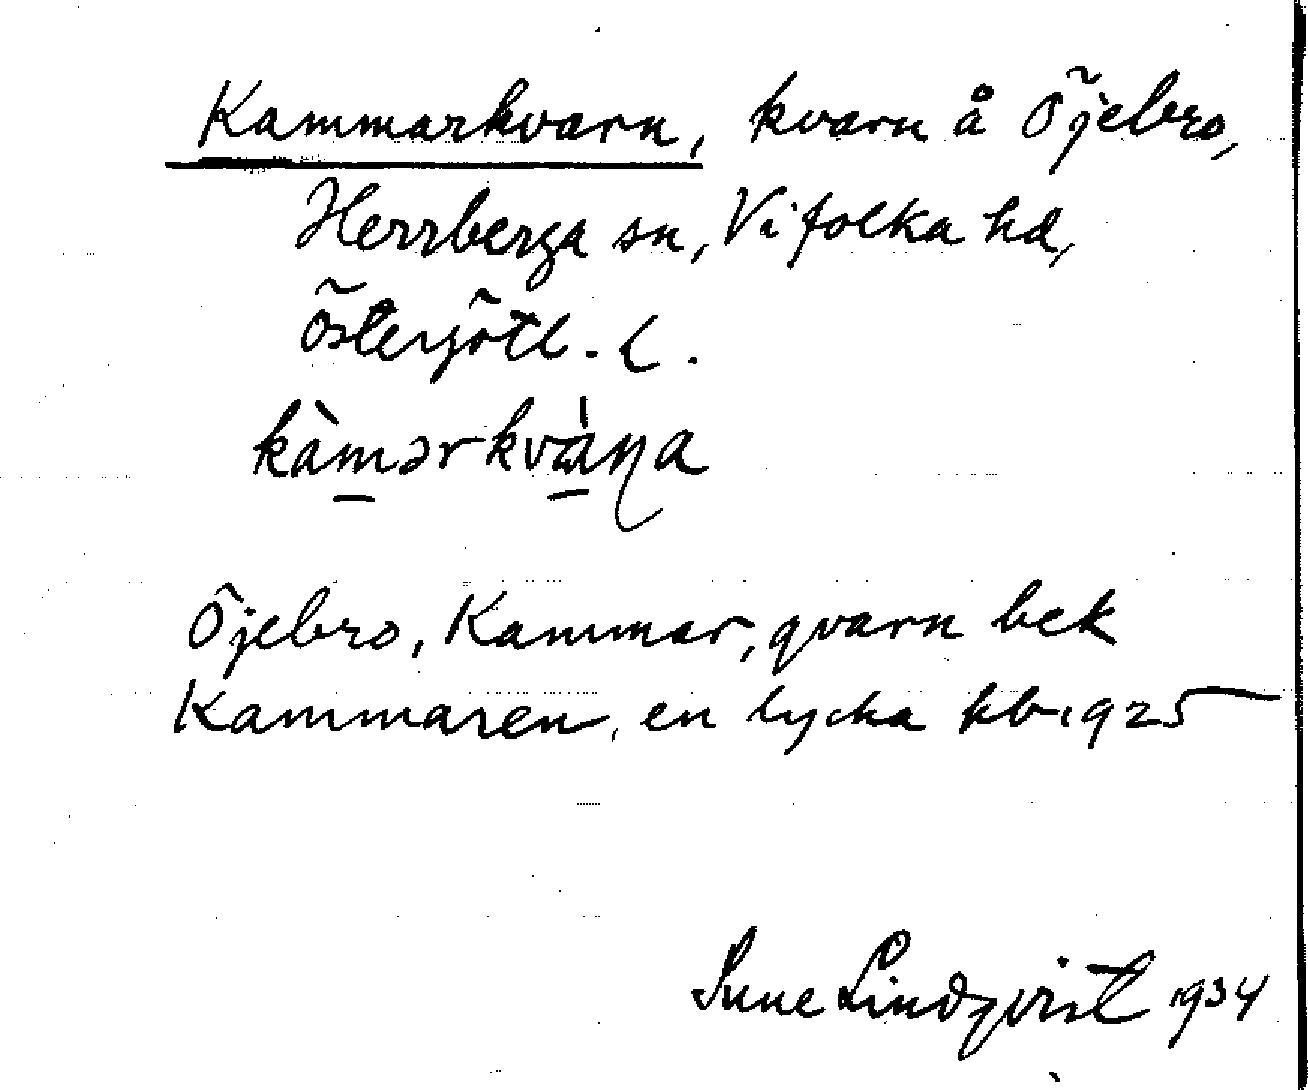 Kammarkvarn, kvarn å Öjebro,
Herrberga sn, Vifolka hd,
Östergötl. l.
kàmərkvàɳa
Öjebro, Kammar, qvarn bek
Kammaren, en lycka kb 1925
Sune Lindqvist 1934